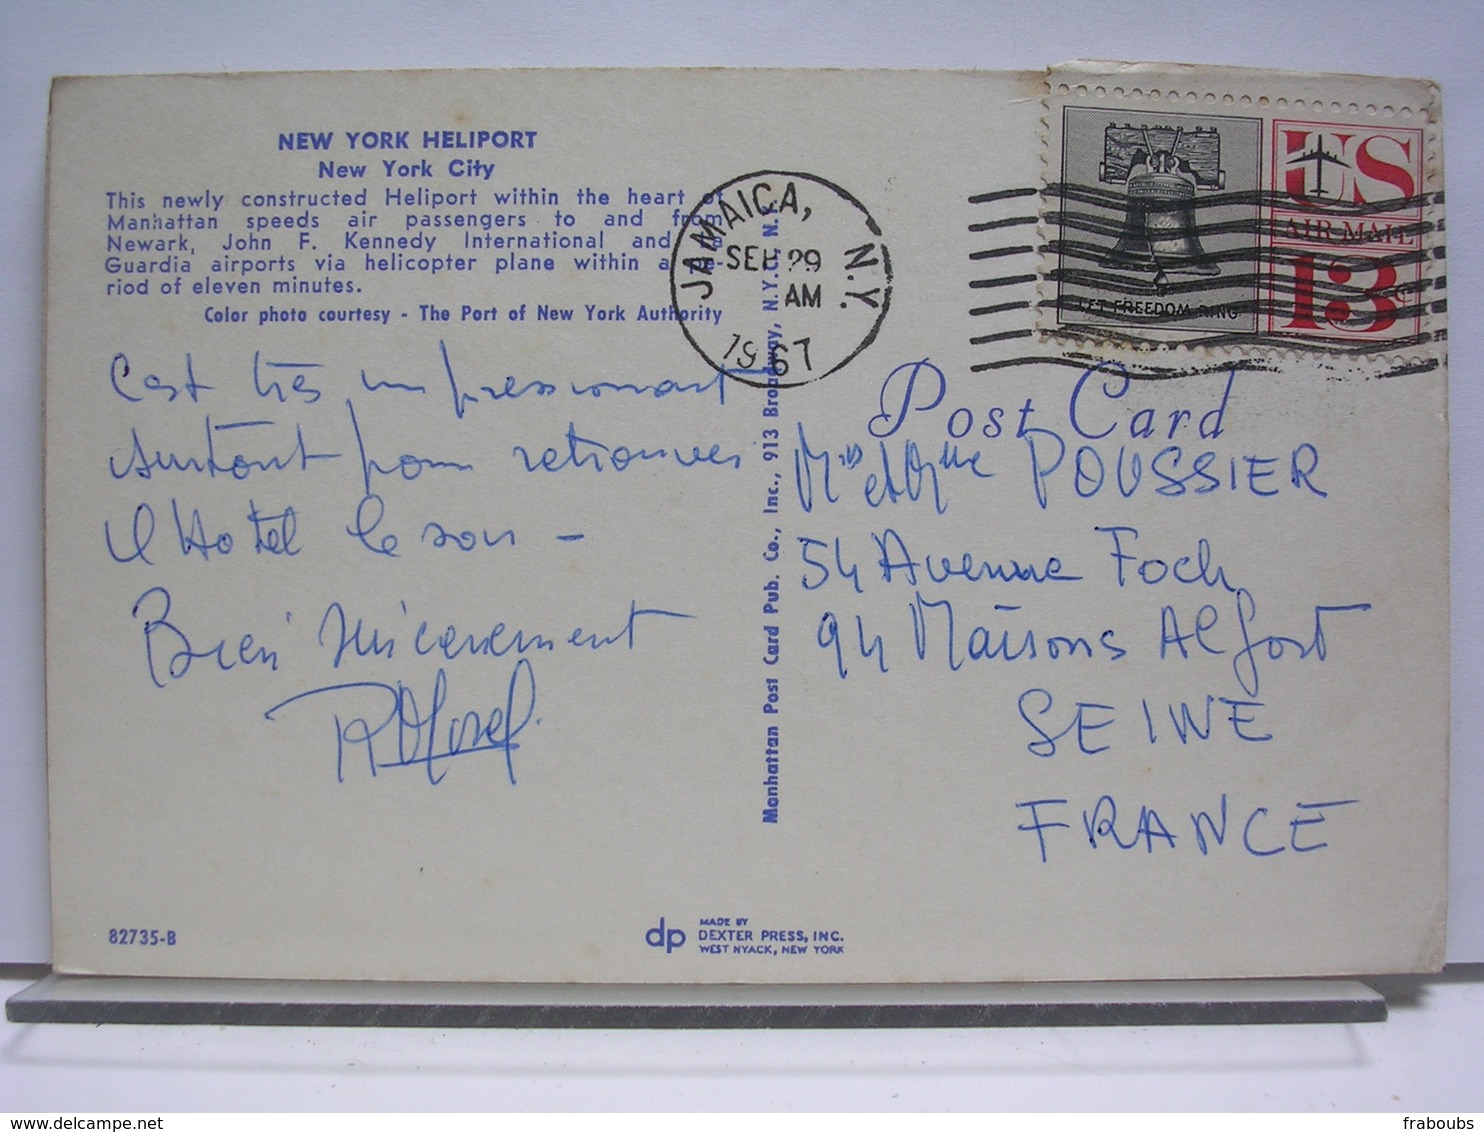 NEW YORK HELIPORT
New York City
This newly constructed Heliport within the heart of
Manhattan speeds air passengers to and from
Newark, John F. Kennedy International and La
Guardia airports via helicopter plane within a pe-
riod of eleven minutes.
Color photo courtesy - The Port of New York Authority
C'est très impressionnant
surtout pour retrouver
l'Hotel le soir -
Bien sincerement
82735-B
dp
MADE BY
DEXTER PRESS, INC.
WEST NYACK, NEW YORK
Manhattan Post Card Pub. Co., Inc., 913 Broadway, N.Y.C. N.Y.
JAMAICA, N.Y.
SEP 29
AM
1967
LET FREEDOM RING
US
AIR MAIL
13c
Post Card
POUSSIER
54 Avenue Foch
94 Maisons Alfort
SEINE
FRANCE
fraboubs